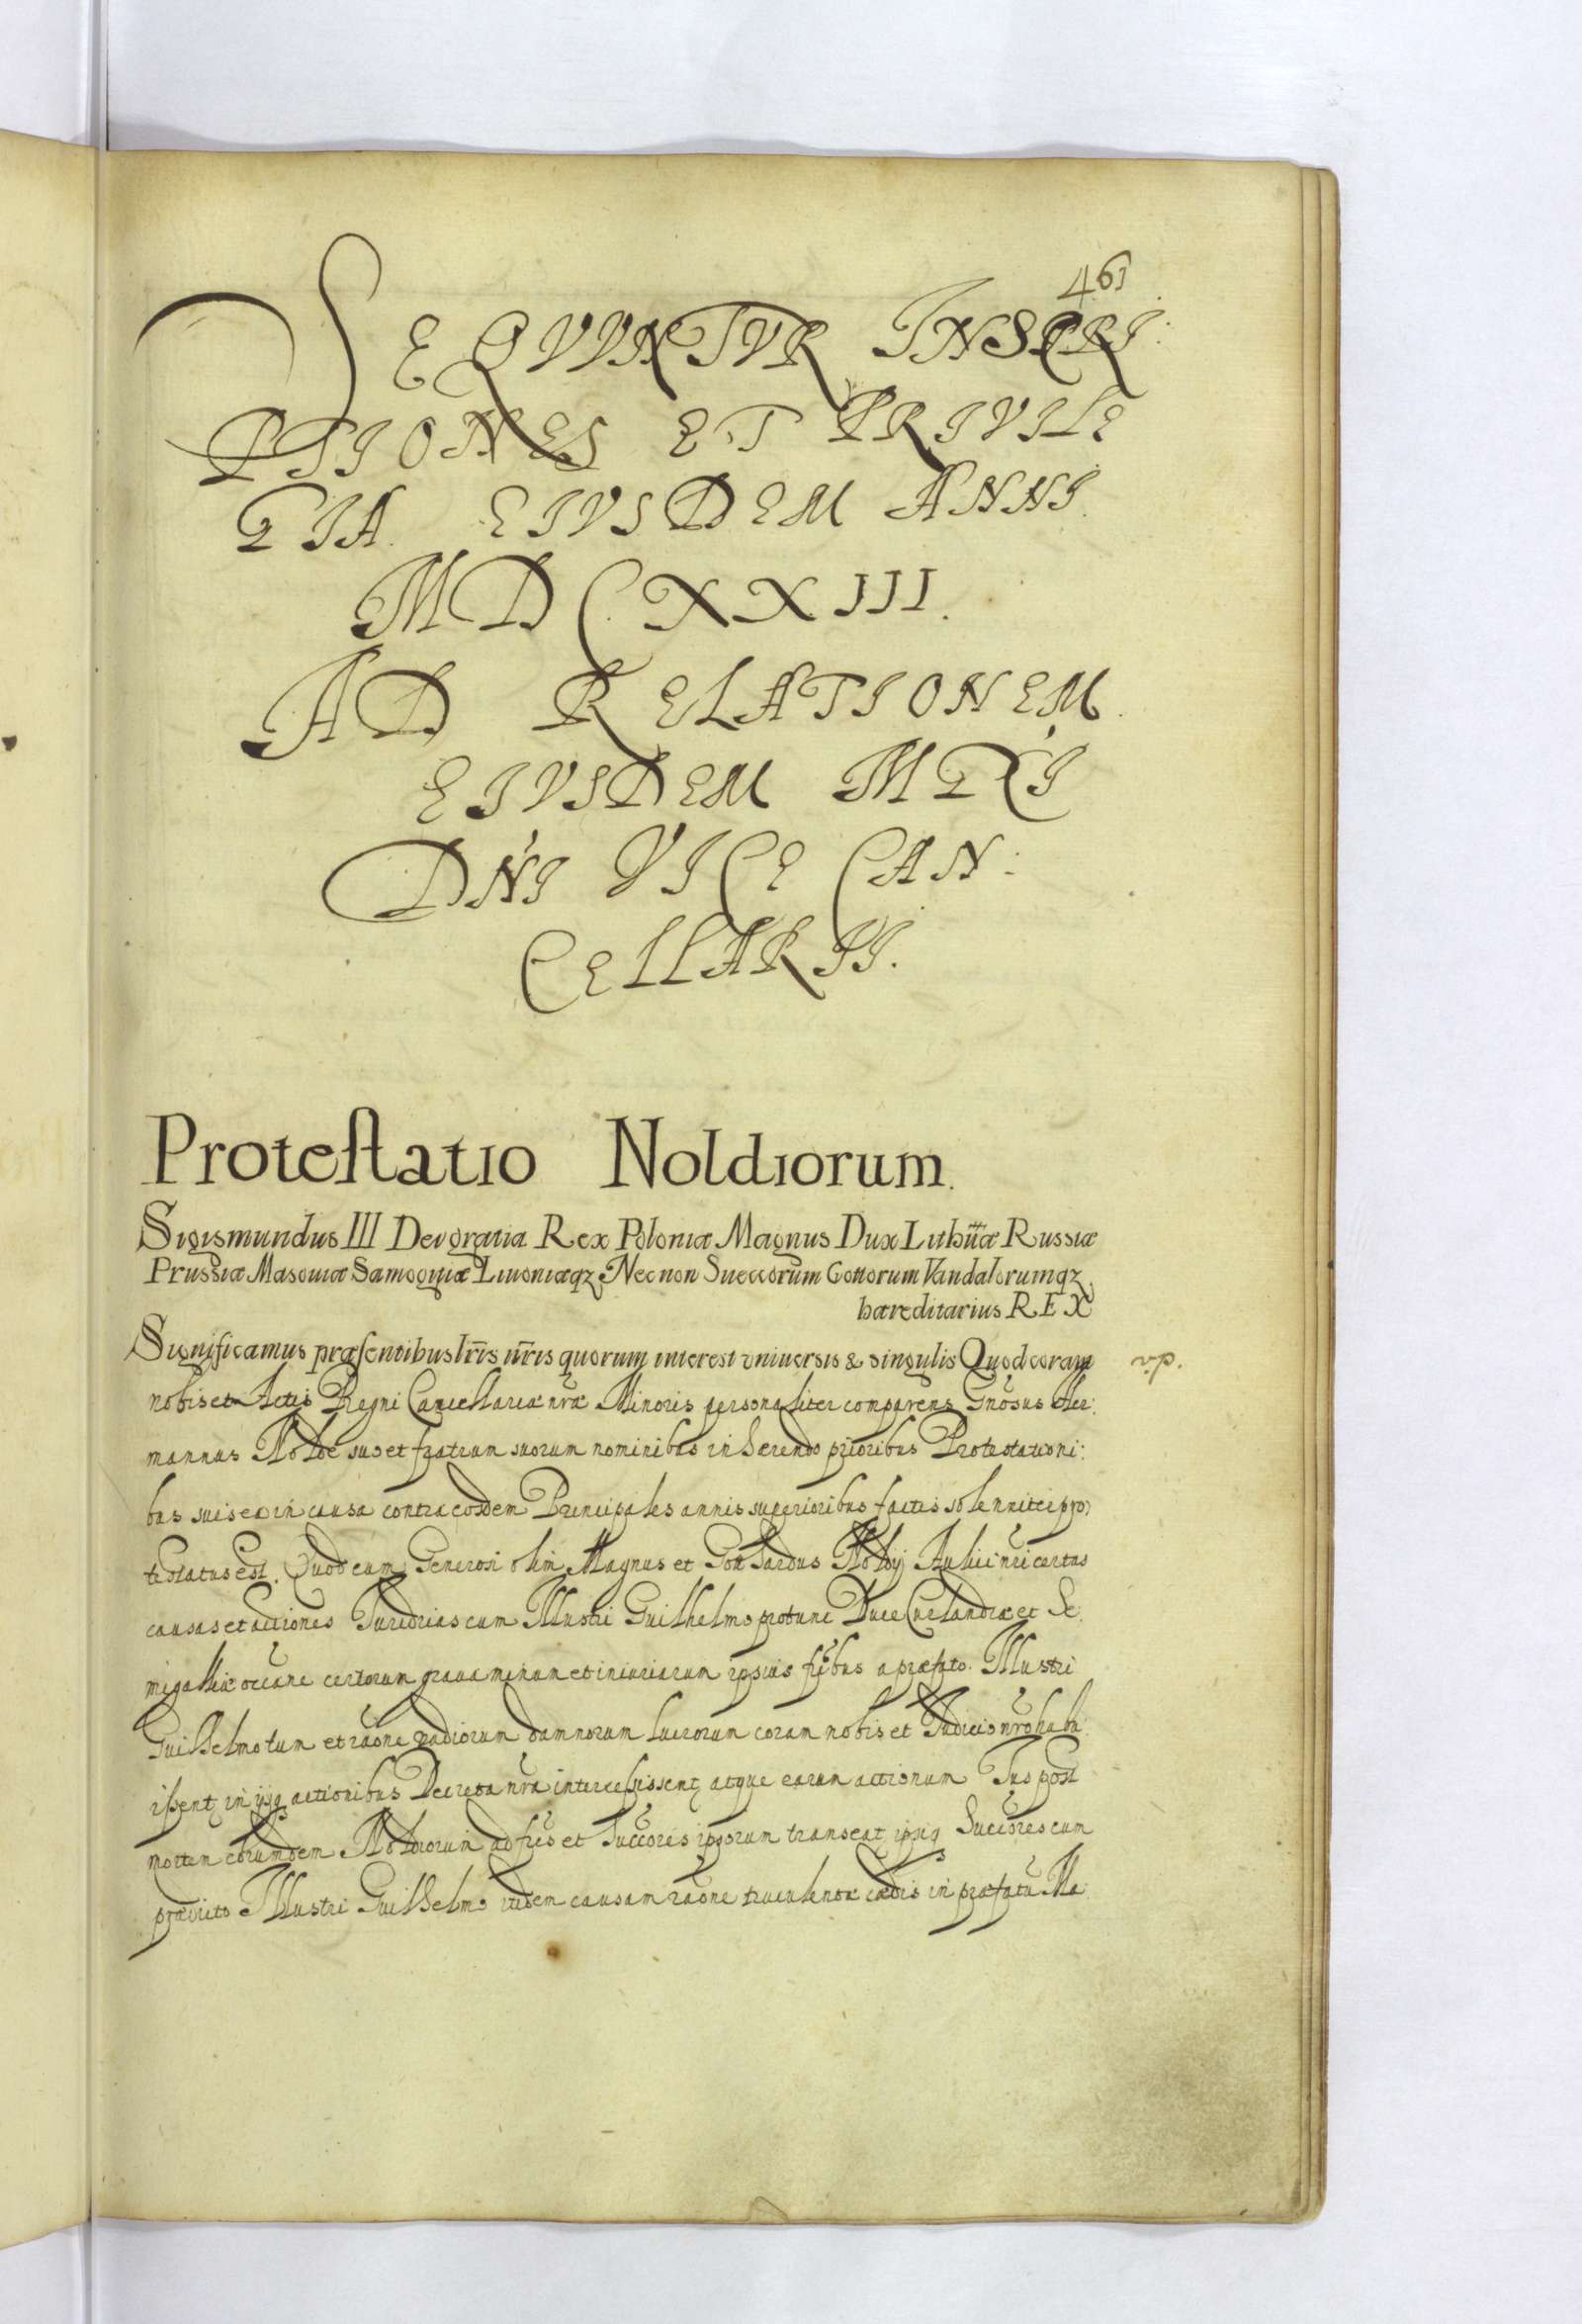 461
SEQVVNTVR INSCRI:
PTIONES ET PRIVILE
GIA EIVSDEM ANNI
MDCXXIII.
AD RELATIONEM
EIVSDEM MGCI
DNI VICE CAN:
CELLARII.
Protestatio Noldiorum.
Sigismundus III Dei gratia Rex Poloniæ Magnus Dux Lithuæ Russiæ
Prussiæ Masouiæ Samogitiæ Liuoniæqz Necnon Sueccorum Gottorum Vandalorumqz
hæreditarius REX
Significamus præsentibus lris nris quorum interest vniuersis & singulis Quod coram
v.p.
nobis et Actis Regni Cancellariæ nræ Minoris personaliter comparens Gnosus Her:
mannus Nolde suo et fratrum suorum nominibus inhærendo prioribus Protestationi:
bus suis ea in causa contra eosdem Principales annis superioribus factis solenniter pro
testatus est. Quod cum Generosi olim Magnus et Gotthardus Noldij Aulici nri certas
causas et actiones Iuridicas cum Illustri Guilhelmo pro tunc Duce Curlandiæ et Se:
migalliæ occane certorum grauaminum et iniuriarum ipsius fribus a præfato Illustri
Guilhelmo tum et raone vadiorum damnorum lucrorum coram nobis et Iudicio nro habu:
issent, in ijsq actionibus Decreta nra intercessissent, atque earum actionum Ius post
mortem eorundem Noldiorum ad fres et Succores ipsorum transeat, ipsiq Succores cum
prædicto Illustri Guilhelmo itidem causam raone truculentæ cædis in præfatu Ma: